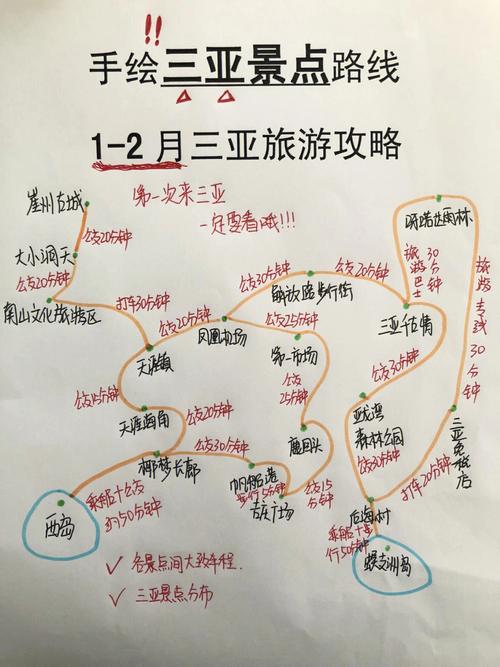 !!
手绘三亚景点路线
1-2月三亚旅游攻略
崖州古城
第一次来三亚
一定要看哦!!!
公交20分钟
大小洞天
公交20分钟
南山文化旅游区
打车30分钟
天涯镇
公交20分钟
凤凰机场
公交30分钟
解放路步行街
公交20分钟
三亚千古情
旅游巴士30分钟
呀诺达雨林
旅游专线30分钟
三亚免税店
打车20分钟
后海村
公交25分钟
第一市场
公交25分钟
鹿回头
公交15分钟
天涯海角
公交20分钟
椰梦长廊
公交30分钟
帆船港
步行5分钟
公交15分钟
公交30分钟
亚龙湾
森林公园
公交30分钟
西岛
乘船+公交
约50分钟
行50分钟
蜈支洲岛
✓ 各景点间大致车程.
✓ 三亚景点分布